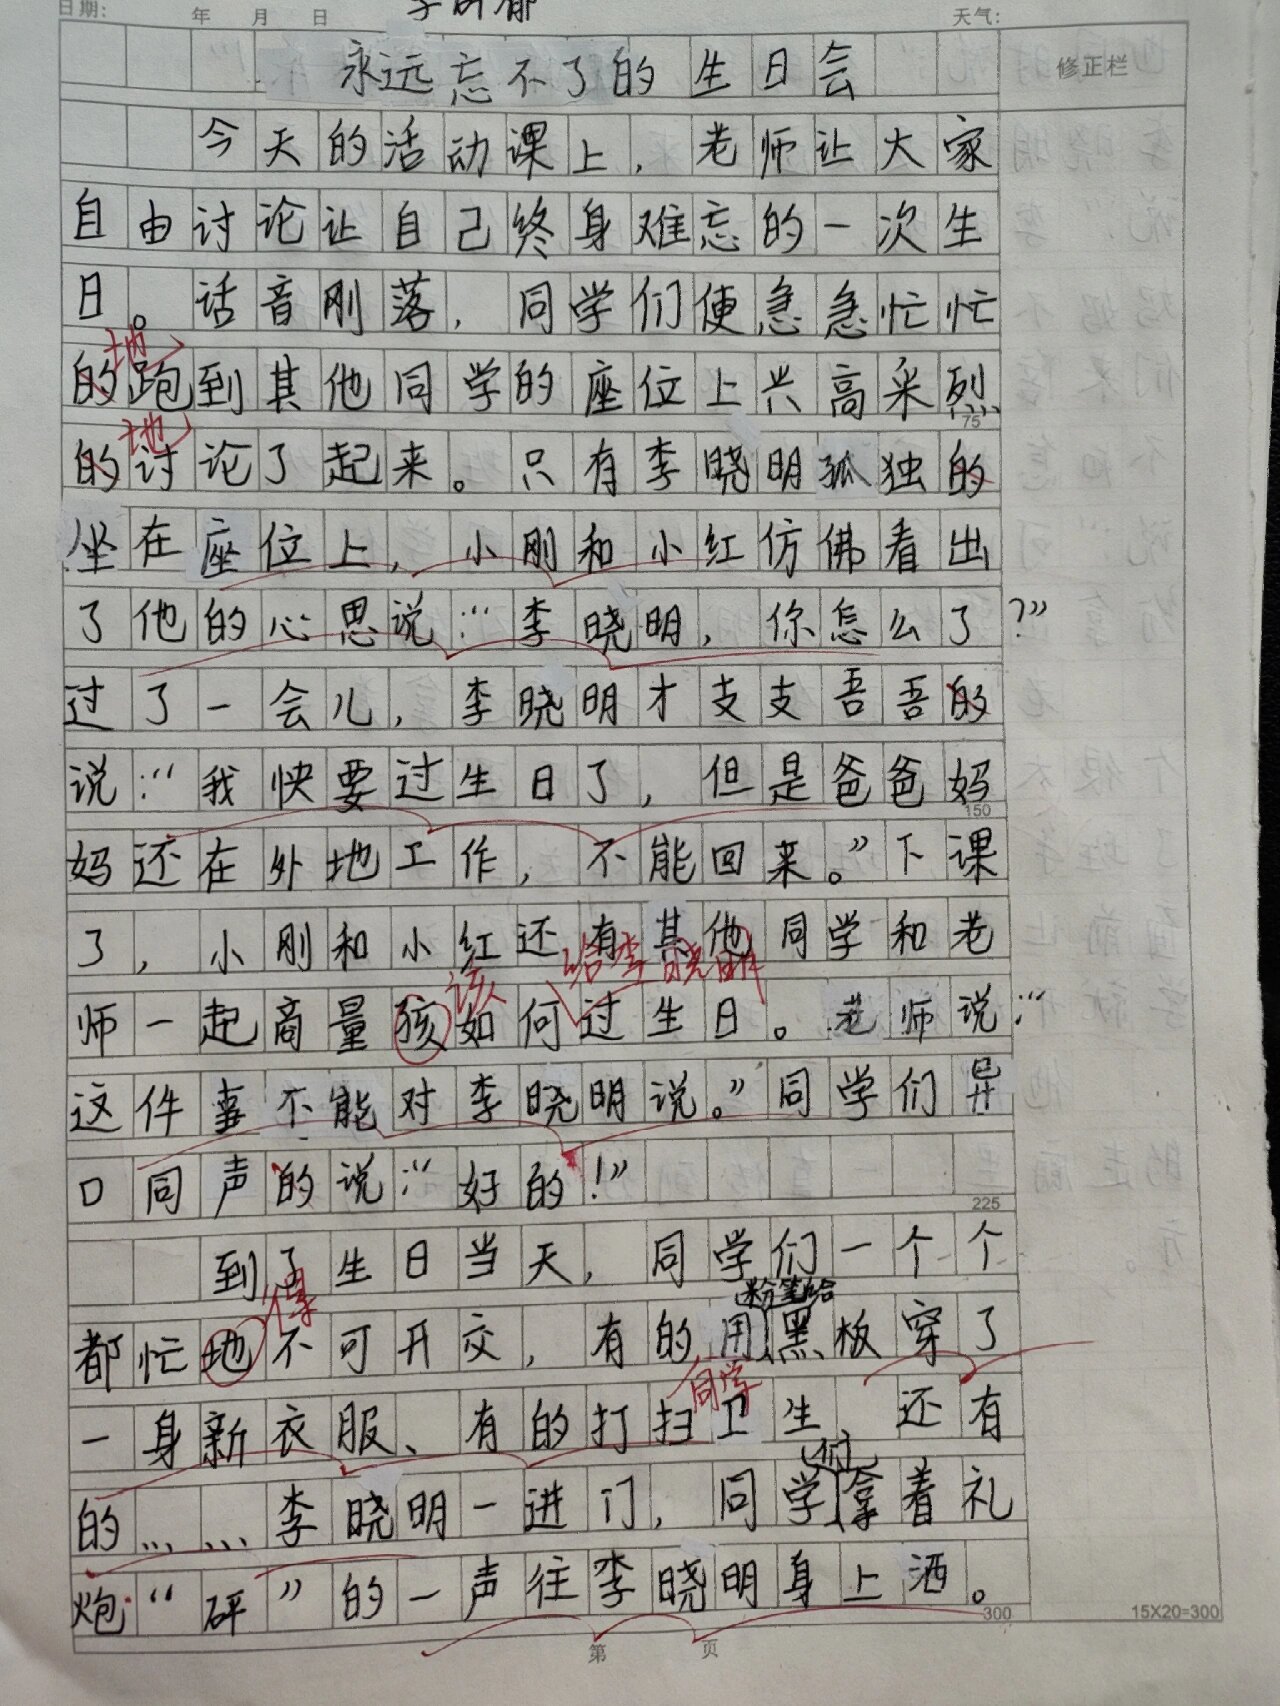 日期: 年 月 日 天气:
永远忘不了的生日会
修正栏
今天的活动课上，老师让大家
自由讨论让自己终身难忘的一次生
日。话音刚落，同学们便急急忙忙
地
的跑到其他同学的座位上兴高采烈
地
的讨论了起来。只有李晓明孤独的
75
坐在座位上，小刚和小红仿佛看出
了他的心思说：“李晓明，你怎么了？”
过了一会儿，李晓明才支支吾吾的
说：“我快要过生日了，但是爸爸妈
150
妈还在外地工作，不能回来。”下课
了，小刚和小红还有其他同学和老
该 给李晓明
师一起商量孩如何过生日。老师说：“
这件事不能对李晓明说。”同学们异
口同声的说：“好的！”
225
到了生日当天，同学们一个个
得 粉笔给
都忙地不可开交，有的用黑板穿了
同学
一身新衣服、有的打扫卫生、还有
们
的……李晓明一进门，同学拿着礼
炮“砰”的一声往李晓明身上洒。
300
15X20=300
第 页